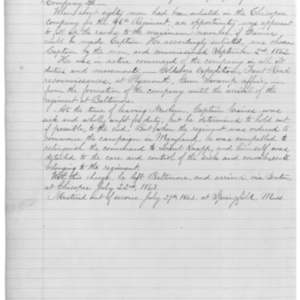 Company
When about eighty men had been enlisted in the Chicopee
company for the 46th Regiment, an opportunity was apparent
to fill up the ranks to the maximum, provided
would be made Captain. He accordingly enlisted, was chosen
Captain by the men, and commissioned September 2nd 1862.
He was in active command of the company in all its
duties and movements, Goldsboro Expedition,
reconnoissance, at Plymouth,
from the formation of the company until the arrival of the
regiment at Baltimore.
At the time of leaving Newbern, Captain
sick and wholly unfit for duty, but he determined to hold out
if possible to the end. But when the regiment was ordered to
the campaign in Maryland, he was compelled to
relinquish the command to Lieut. and himself was
detailed to the care and control of the sick and convalescents
belonging to the regiment.
With this charge, he left Baltimore and arrived
at Chicopee July 22nd, 1863.
Mustered out of service July 29th 1863, at Springfield, Mass.